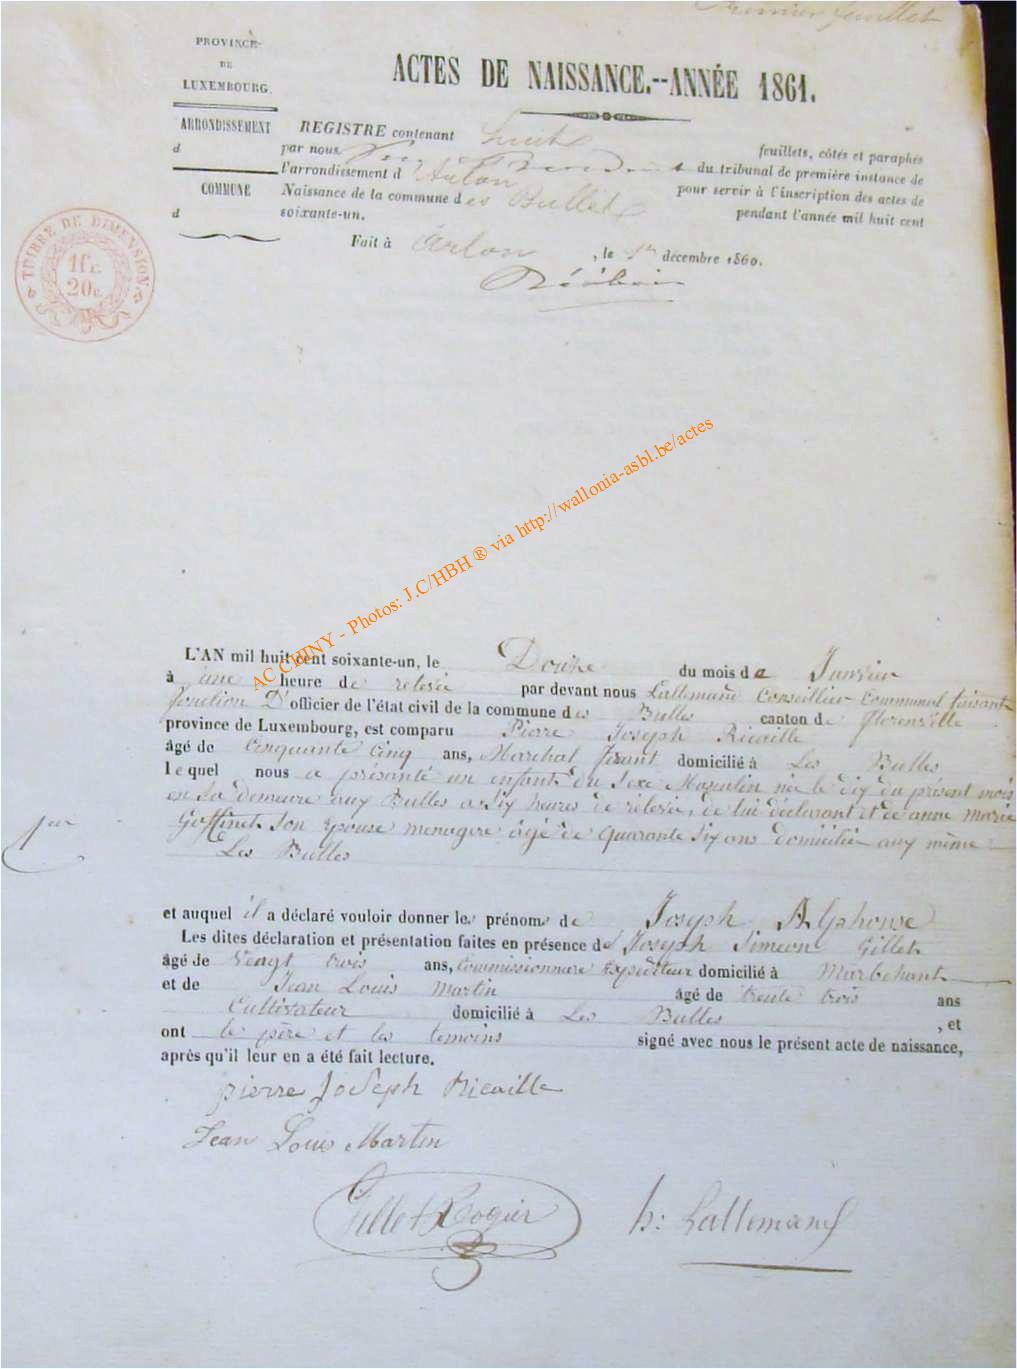 Premier feuillet
PROVINCE
DE
LUXEMBOURG.
ACTES DE NAISSANCE.--ANNÉE 1861.
ARRONDISSEMENT
d
COMMUNE
d
REGISTRE contenant huit feuillets, côtés et paraphés
par nous du tribunal de première instance de
l'arrondissement d'Arlon pour servir à l'inscription des actes de
Naissance de la commune des Bulles pendant l'année mil huit cent
soixante-un.
Fait à Arlon, le 1er décembre 1860.
TIMBRE DE DIMENSION
1fr.
20c.
AC CHINY - Photos: J.C/HBH ® via http://wallonia-asbl.be/actes
L'AN mil huit cent soixante-un, le Douze du mois de Janvier
à une heure de relevée par devant nous Lallemand Conseiller Communal faisant
fonction D'officier de l'état civil de la commune des Bulles canton de florenville
province de Luxembourg, est comparu Pierre Joseph Ricaille
âgé de Cinquante Cinq ans, Marchal ferant domicilié à Les Bulles
lequel nous a présenté un enfant du Sexe Masculin née le dix du présent mois
en Sa demeure aux Bulles a Six heures de relevée, de lui déclarant et de anne marie
1er
Goffinet Son Epouse menagere âgé de quarante Six ans domicilié aux même
Les Bulles
et auquel il a déclaré vouloir donner les prénoms de Joseph Alphonse
Les dites déclaration et présentation faites en présence de Joseph Simeon Gillet
âgé de Vengt trois ans, Commissionnare Expediteur domicilié à Marbehant
et de Jean Louis Martin âgé de trente trois ans
Cultivateur domicilié à Les Bulles, et
ont le père et les temoins signé avec nous le présent acte de naissance,
après qu'il leur en a été fait lecture.
pierre Joseph Ricaille
Jean Louis Martin
Gillet Rogier
h: Lallemand